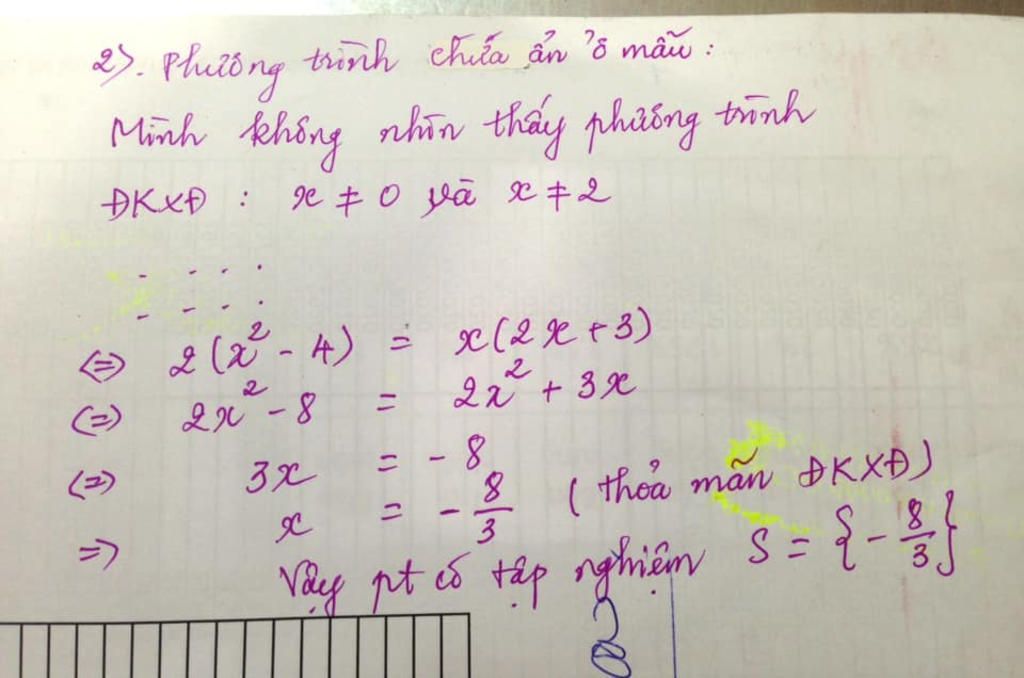 2). Phương trình chứa ẩn ở mẫu :
Mình không nhìn thấy phương trình
ĐKXĐ : x ≠ 0 và x ≠ 2
. . . .
. . . .
<=> 2(x² - 4) = x(2x + 3)
<=> 2x² - 8 = 2x² + 3x
<=> 3x = - 8
=> x = - 8/3 (thỏa mãn ĐKXĐ)
Vậy pt có tập nghiệm S = {- 8/3}